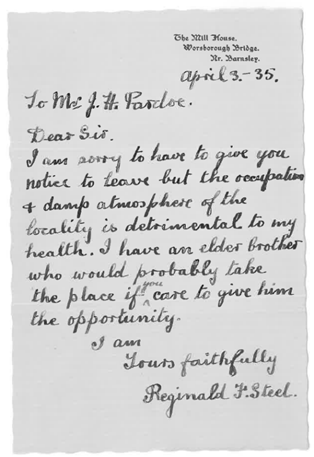 The Mill House.
Worsborough Bridge.
Nr. Barnsley.
April 3.-35.
To Mr J. H. Pardoe.
Dear Sir.
I am sorry to have to give you
notice to leave but the occupation
& damp atmosphere of the
locality is detrimental to my
health. I have an elder brother
who would probably take
the place if you care to give him
the opportunity.
I am
Yours faithfully
Reginald F. Steel.